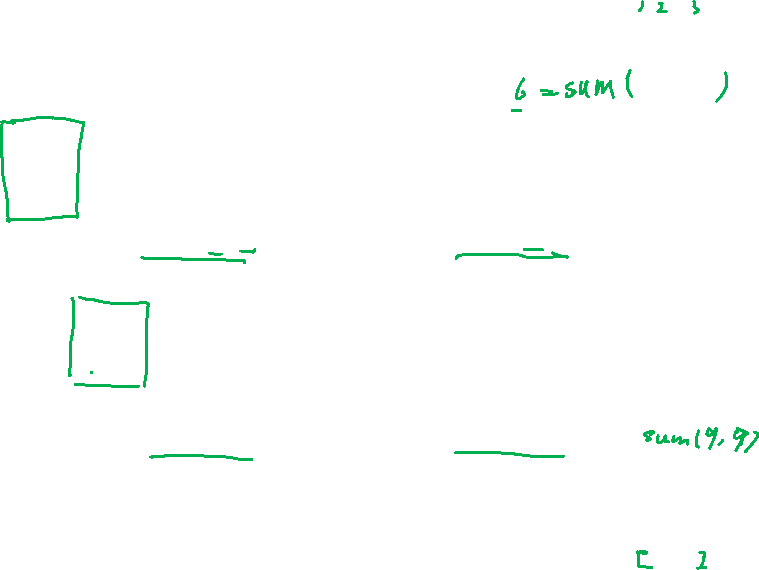 1 2 3
6 = sum(      )
sum(9,9)
[    ]